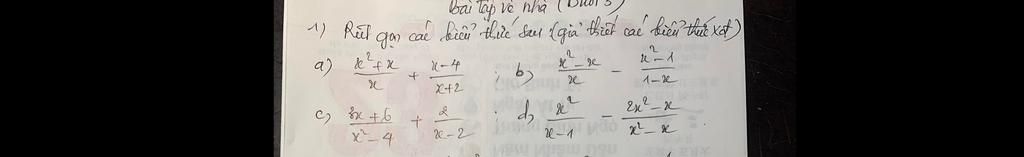 bài tập về nhà (Buổi 3)
1) Rút gọn các biểu thức sau (giả thiết các biểu thức xđ)
a) \frac{x^2+x}{x} + \frac{x-4}{x+2} ; b) \frac{x^2-x}{x} - \frac{x^2-1}{1-x}
c, \frac{3x+6}{x^2-4} + \frac{2}{x-2} ; d, \frac{x^2}{x-1} - \frac{2x^2-x}{x^2-x}.